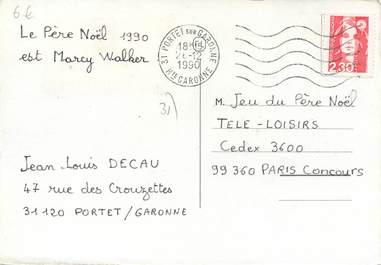 6€
Le Père Noël 1990
est Marcy Walker
31 PORTET SUR GARONNE
18H
1990
Hte GARONNE
2,30
31
M. Jeu du Père Noël
TELE - LOISIRS
Cedex 3600
99 360 PARIS Concours
Jean-Louis DECAU
47 rue des Crouzettes
31120 PORTET/GARONNE